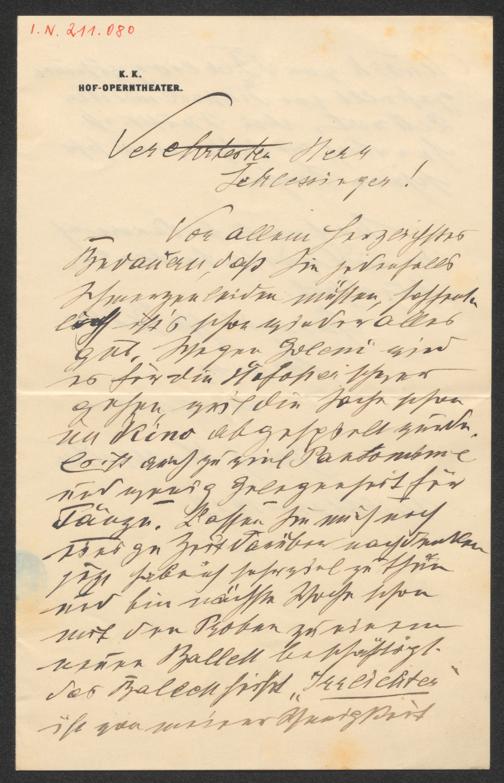 I.N. 211.080
K. K.
HOF-OPERNTHEATER.
Verehrtester Herr
Schlessinger!
Vor allem herzlichstes
Bedauern, daß Sie jedenfalls
Schmerzen leiden müssen, hoffent-
lich ist's schon wieder alles
gut. Wegen wird
es für die Hofoper schwer
gehen, weil die Sache schon
im Kino abgespielt wurde.
Es ist auch zu viel Pantomime
und wenig Gelegenheit für
Tänze. Lassen Sie mich noch
einige Zeit darüber nachdenken
jetzt habe ich sehr viel zu thun
und bin nächste Woche schon
mit den Proben zu einem
neuen Ballett beschäftigt.
das Ballett heißt „Irrlichter“
ist von meiner Wenigkeit